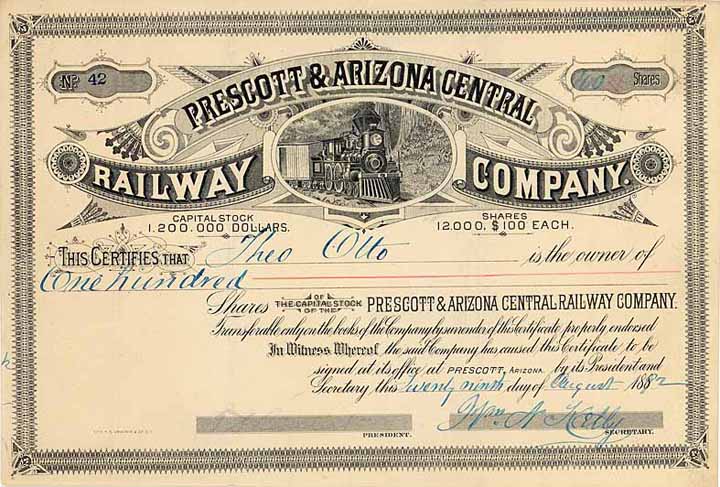 No. 42
Shares
PRESCOTT & ARIZONA CENTRAL
RAILWAY COMPANY.
CAPITAL STOCK
1.200.000 DOLLARS.
SHARES
12.000, $100 EACH.
THIS CERTIFIES THAT Theo Otto is the owner of
One hundred
Shares OF THE CAPITAL STOCK OF THE PRESCOTT & ARIZONA CENTRAL RAILWAY COMPANY.
Transferable only on the books of the Company by surrender of this Certificate properly endorsed
In Witness Whereof the said Company has caused this Certificate to be
signed at its office at PRESCOTT, ARIZONA. by its President and
Secretary this Twenty ninth day of August 1882
Wm. N. Kelly
PRESIDENT.
SECRETARY.